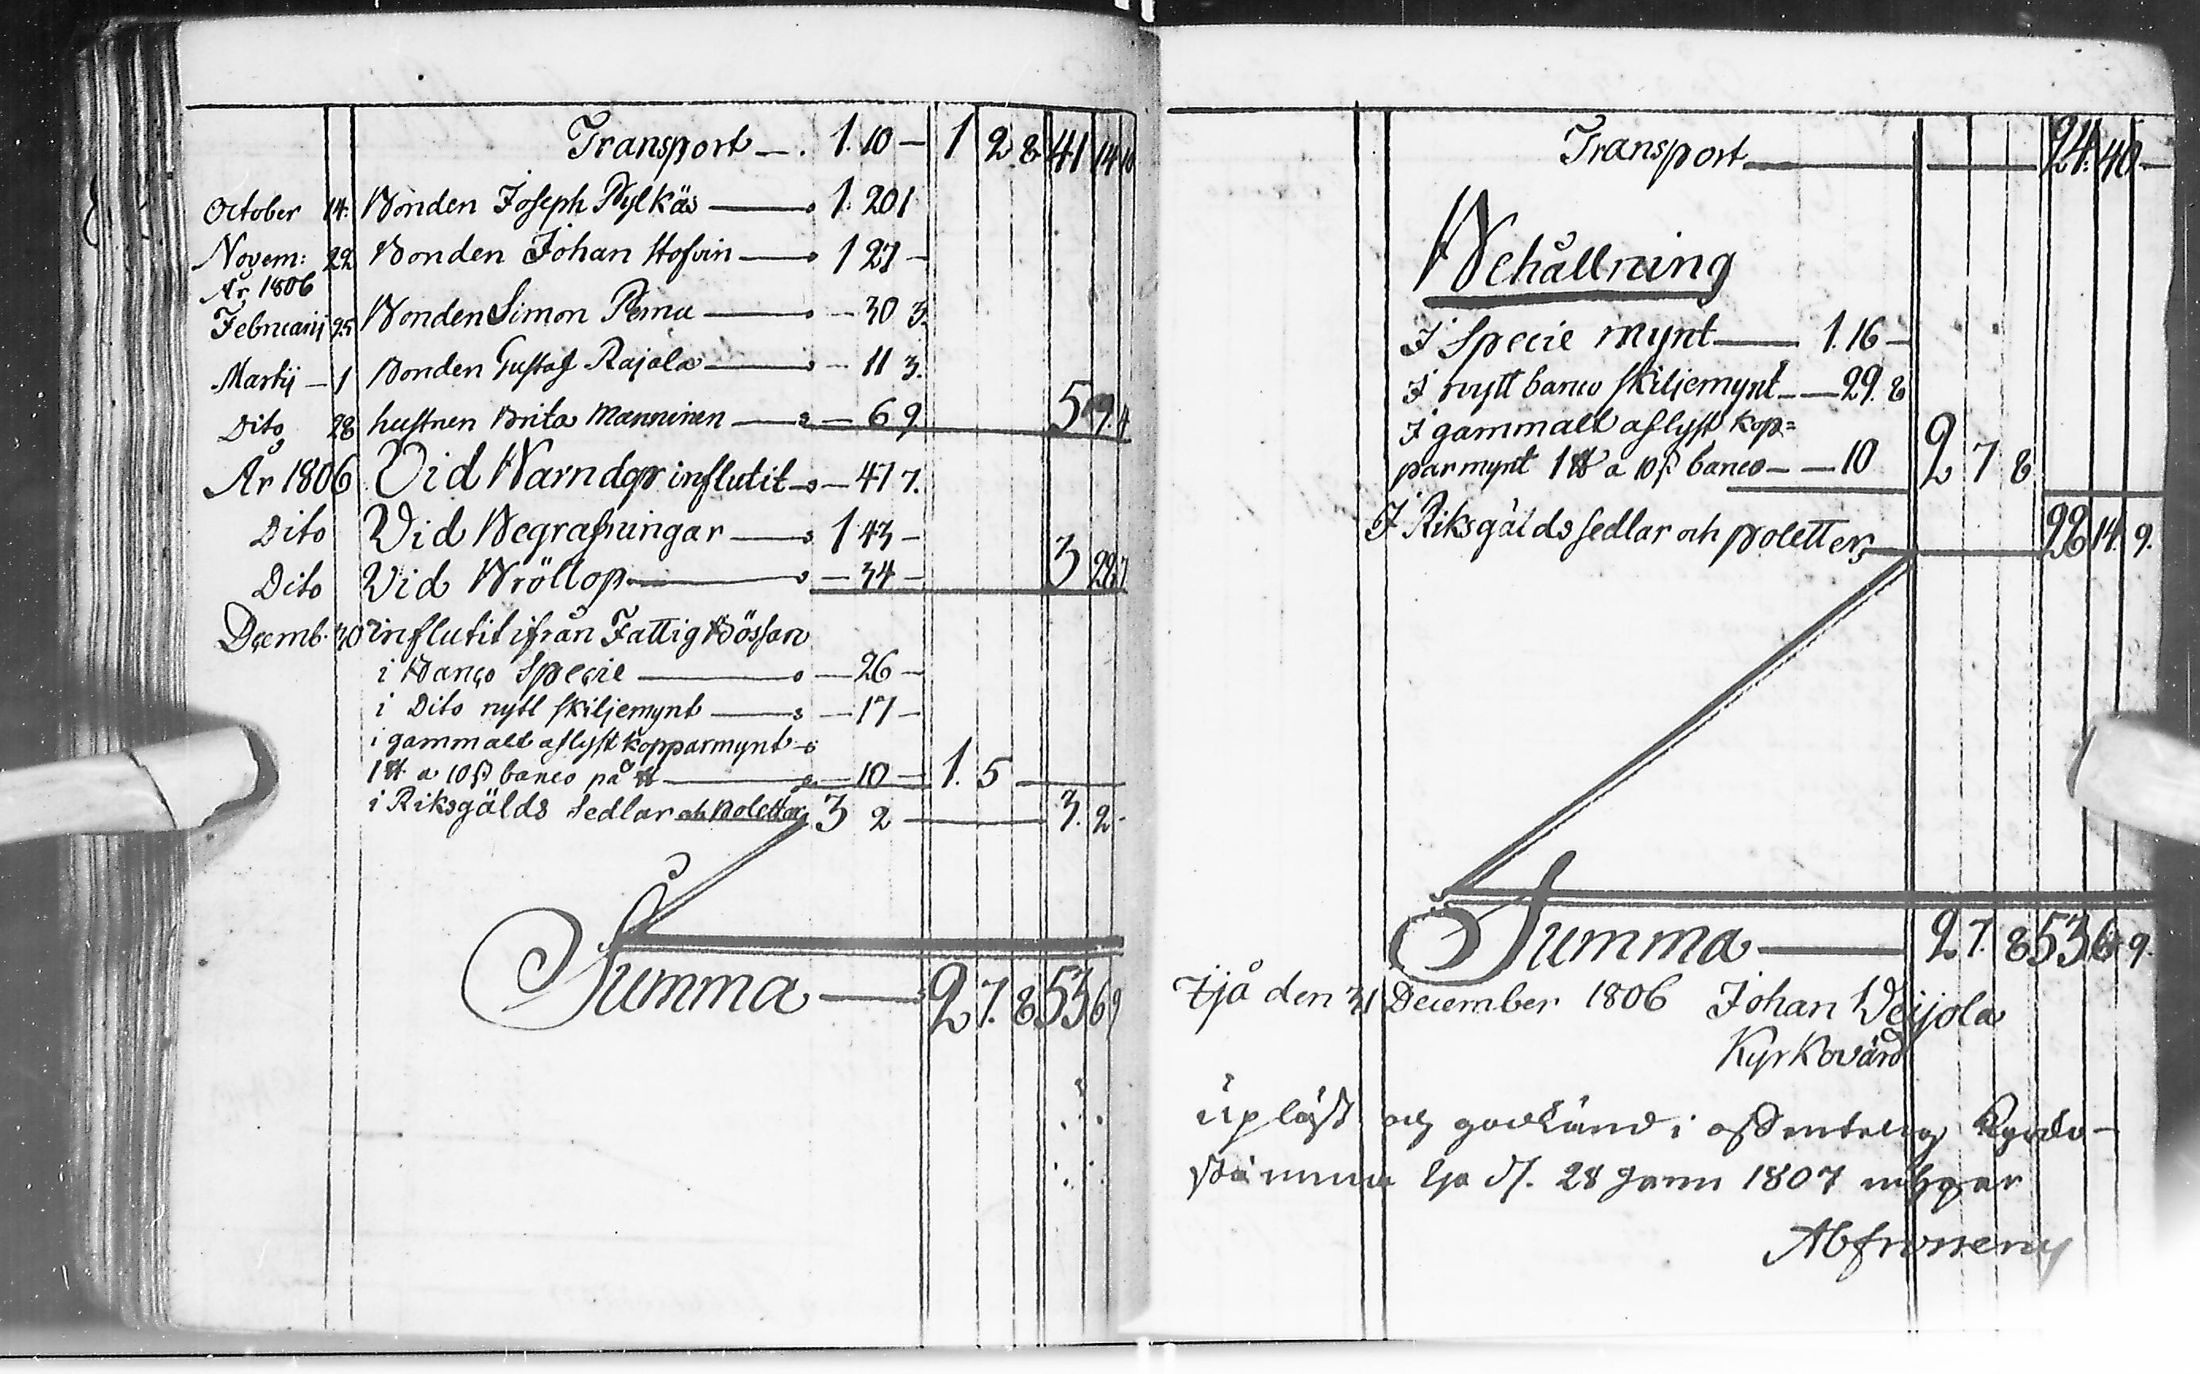 Transport — . 1. 10 — 1 2 8 41 14 10
October 14. Bonden Joseph Pylkäs — 1. 20 1
Novem: 22 Bonden Johan Hosvin — 1 27 —
År 1806
Februarij 25 Bonden Simon Pernu — — 30 3.
Martij — 1 Bonden Gustaf Rajala — — 11 3.
Dito 28 hustrun Brita Manninen — — 6 9. 5 9. 4
År 1806 Vid Barndop influtit — — 47 7.
Dito Vid Begrafningar — 1 43 —
Dito Vid Bröllop — — 34 — 3 28 7
Decemb. 30 influtit ifrån Fattig Bössan
i Banco Specie — — 26 —
i Dito nytt skiljemynt — — 17 —
i gammalt aflyst kopparmynt
1 ℔ a 10 ß banco på ℔ — — 10 — 1. 5 —
i Riksgälds Sedlar och Poletter 3 2 — 3. 2 —
Summa — 2 7. 8 53 6 9
Transport — 24. 40 —
Behållning
I Specie mynt — 1. 16 —
I nytt banco skiljemynt — — 29. 8
I gammalt aflyst kop=
parmynt 1 ℔ a 10 ß banco — — 10 2 7 8
I Riksgälds sedlar och poletter — 28 14. 9.
Summa — 2 7. 8 53 6 9.
Ijå den 31 December 1806 Johan Veijola
Kyrkovärd
Upläst och godkänd i offentelig Kyrko-
stämma Ijo d. 28 Janu 1807 intygar